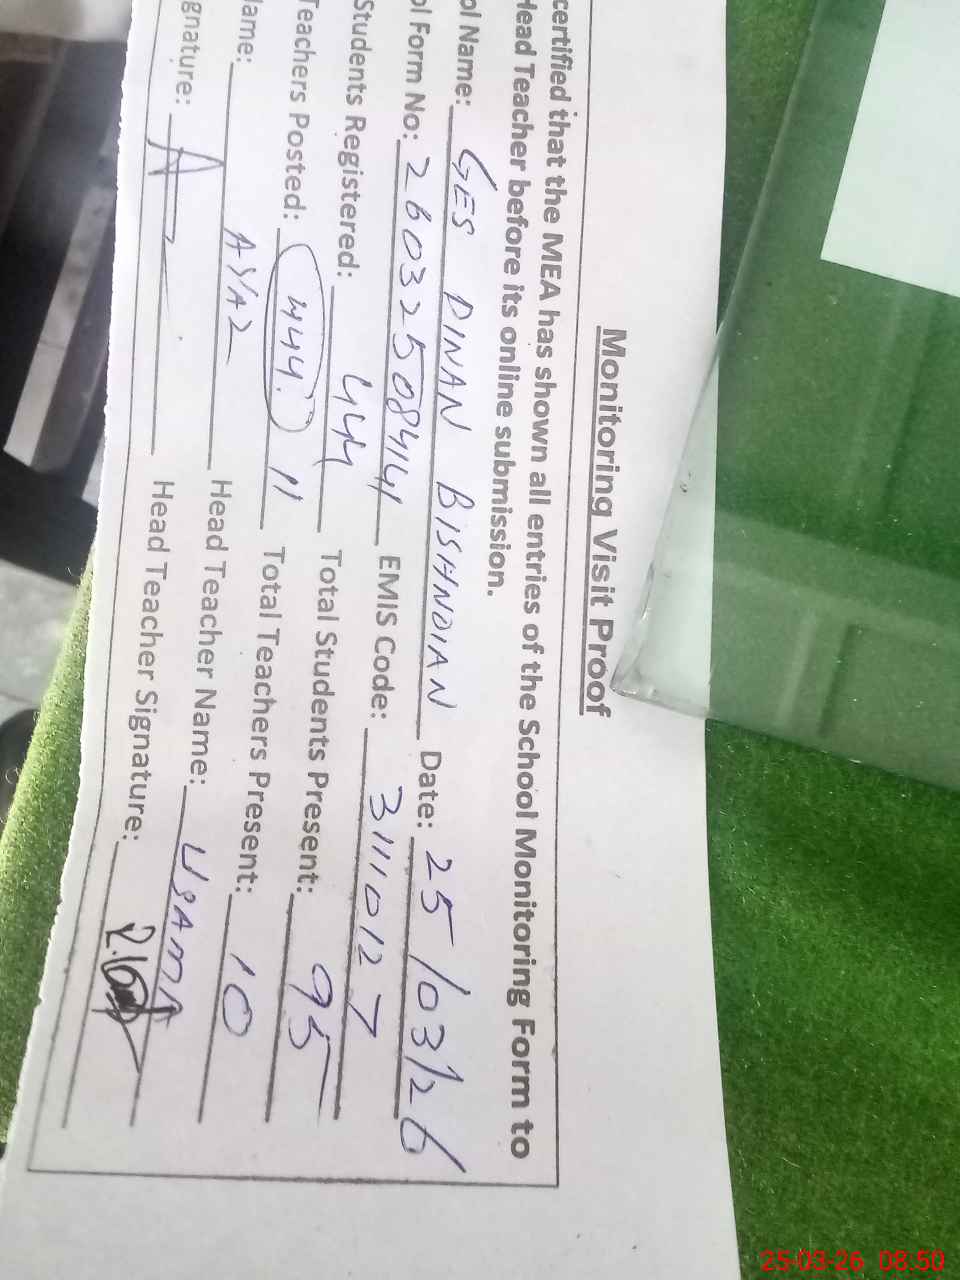 Monitoring Visit Proof
certified that the MEA has shown all entries of the School Monitoring Form to
Head Teacher before its online submission.
ol Name: GES PINAN BISHNOIAN Date: 25/03/26
ol Form No: 26032508414 EMIS Code: 31110127
Students Registered: 444 Total Students Present: 95
Teachers Posted: 444 11 Total Teachers Present: 10
Name: AYAZ Head Teacher Name: USAMA
gnature: Head Teacher Signature:
25-03-26 08:50